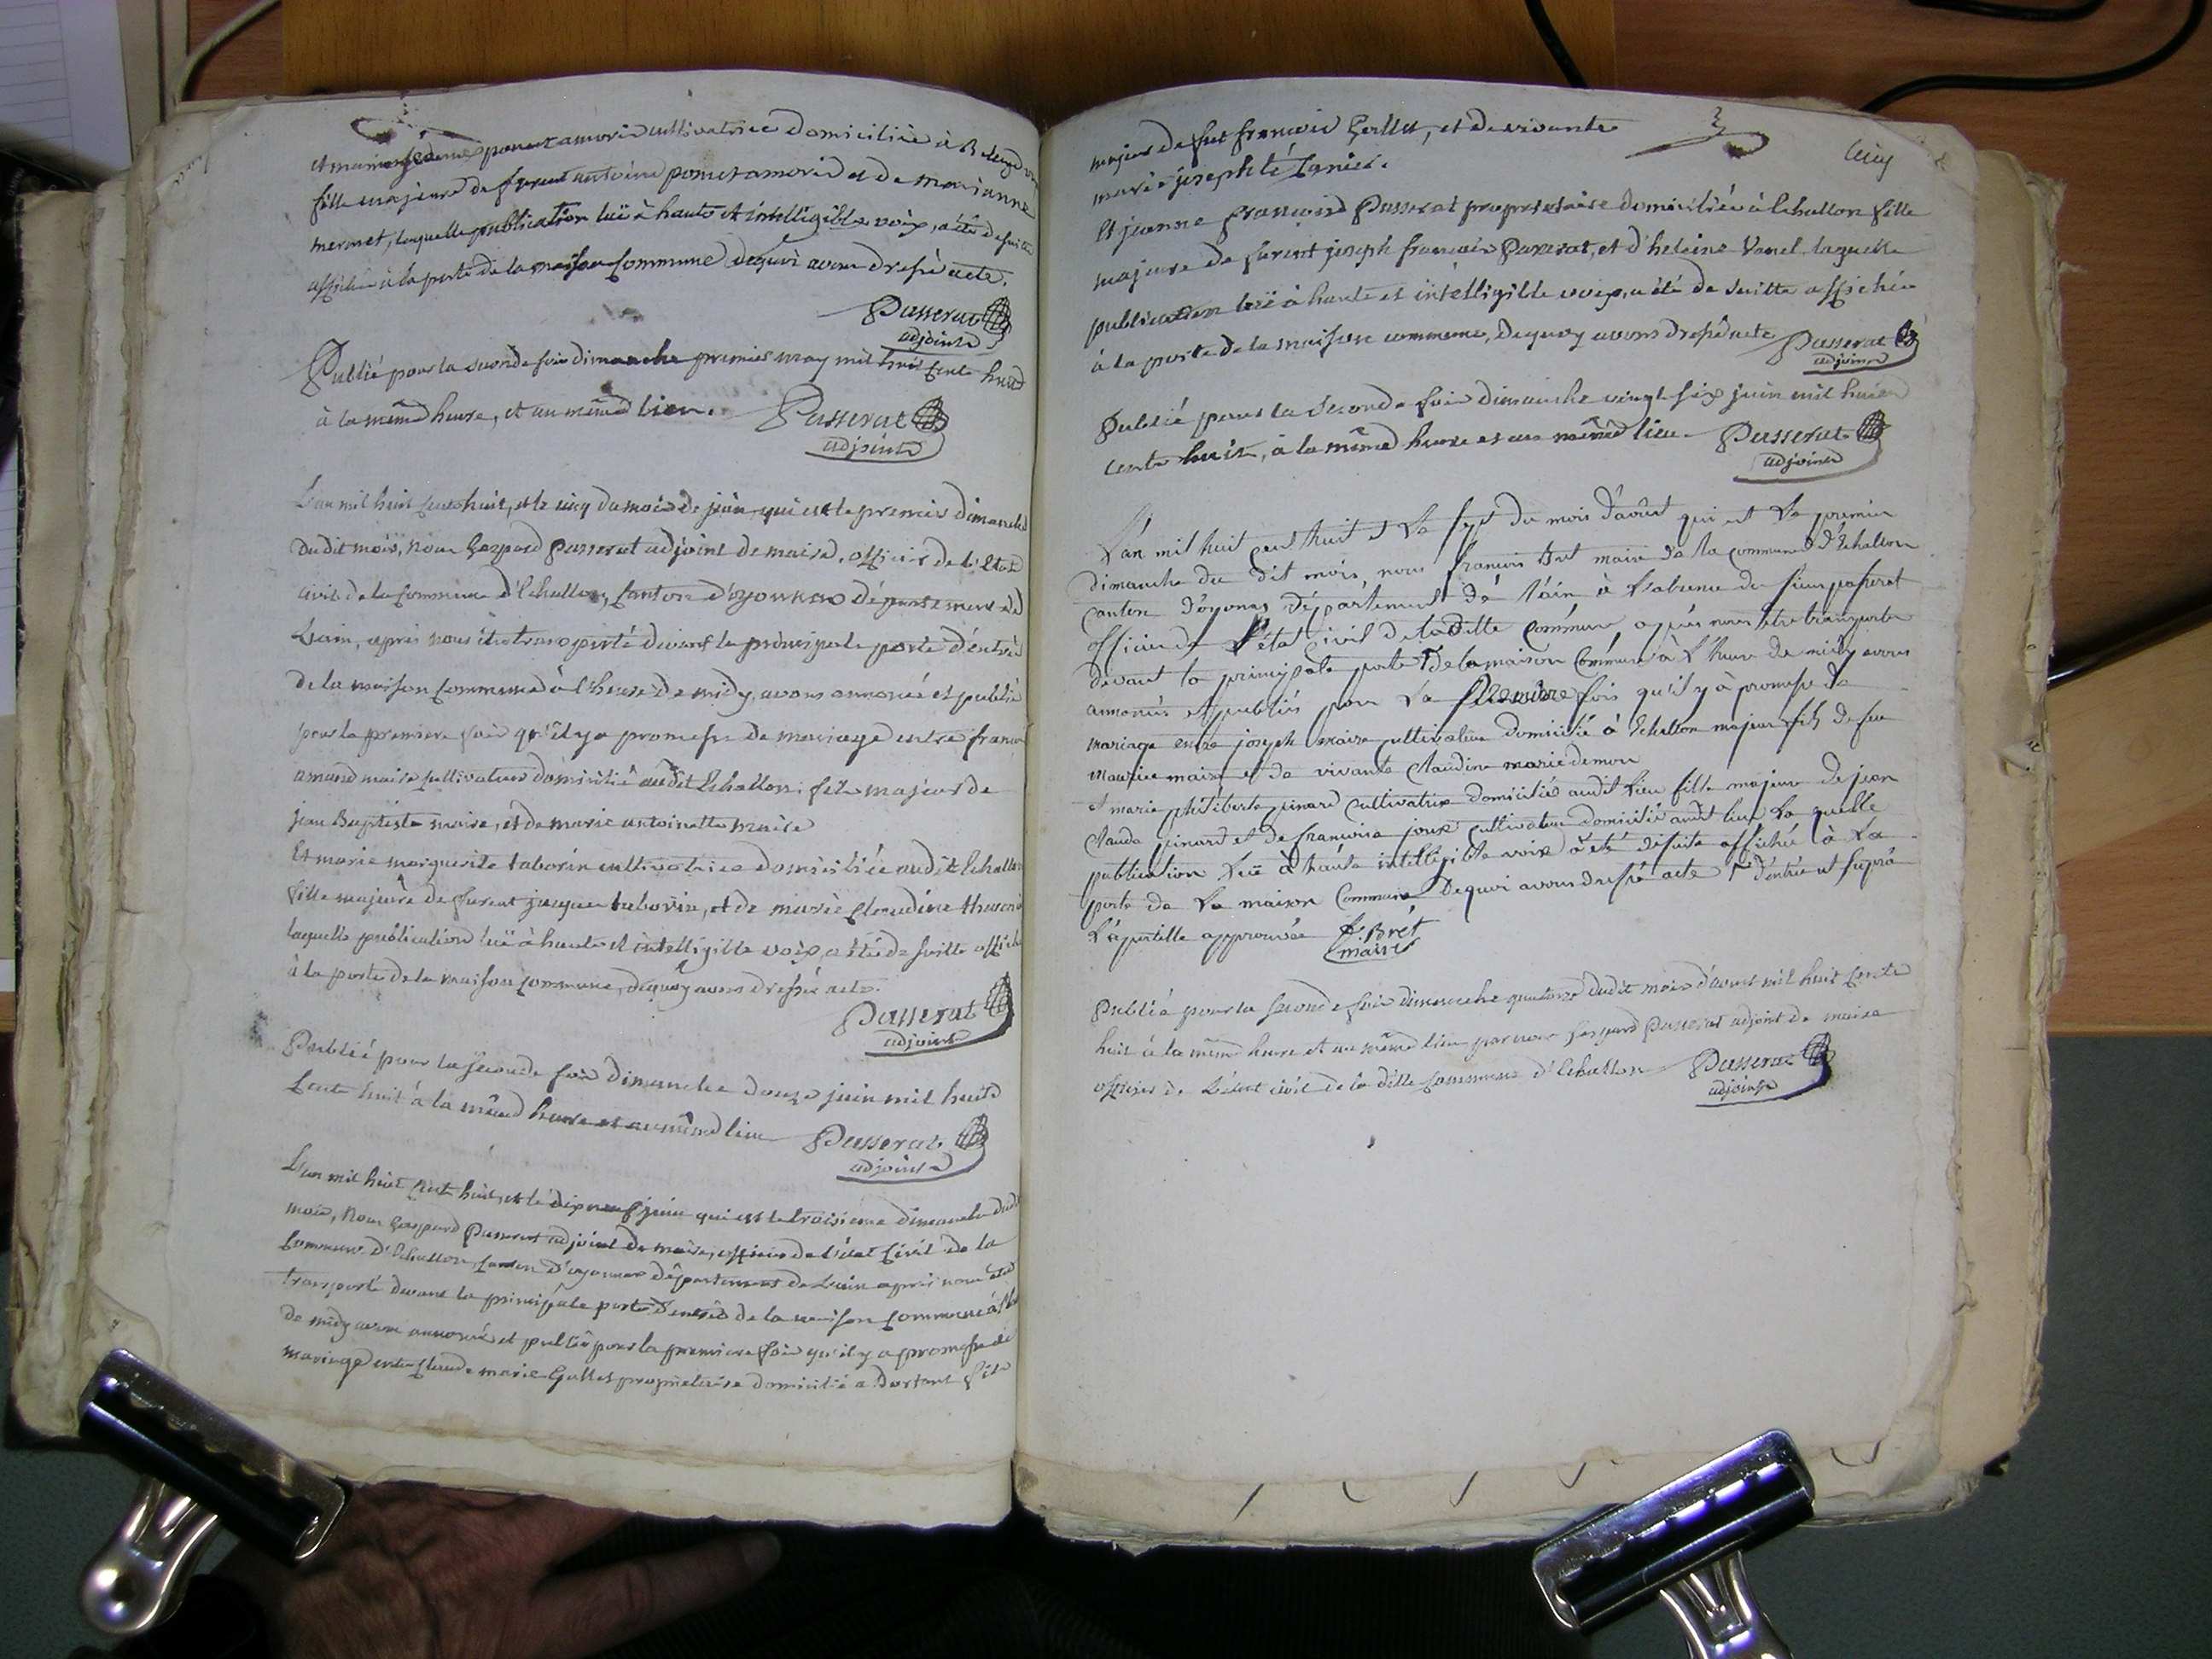 cultivatrice domiciliée à
fille majeure de furent antoine ponct amorid et de marianne
mermet, laquelle publication luë à haute et intelligible voix, a été de suite
affichée à la porte de la maison Commune dequoi avons dressé acte.
Passerat
adjoint
Publié pour la seconde fois dimanche premier may mil huit Cent huit
à la même heure, et au même lieu. Passerat
adjoint
L'an mil huit Cent huit, et le cinq du mois de juin qui est le premier dimanche
du dit mois, nous Gaspard Passerat adjoint de maire, officier de l'état
civil de la Commune d'Echallon, Canton d'oyonnax département de
Lain, après nous être transporté devant la principale porte d'entrée
de la maison Commune à l'heure de midy, avons annoncé et publié
pour la premiere fois qu'il y a promesse de mariage entre françois
amand maire Cultivateur domicilié audit Echallon, fils majeur de
jean Baptiste maire, et de marie antoinette maire
Et marie marguerite taborin cultivatrice domiciliée audit Echallon
fille majeure de furent jacques taborin, et de marie Claudine
laquelle publication luë à haute et intelligible voix, a été de suitte affichée
à la porte de la maison Commune, dequoy avons dressé acte.
Passerat
adjoint
Publié pour la seconde fois dimanche douze juin mil huit
Cent huit à la même heure et au même lieu Passerat
adjoint
L'an mil huit Cent huit, et le dix neuf juin qui est le troisieme dimanche dudit
mois, Nous Gaspard Passerat adjoint de maire, officier de l'état Civil de la
Commune d'Echallon Canton d'oyonnax département de Lain après nous être
transporté devant la principale porte d'entrée de la maison Commune à
de midy avons annoncé et publié pour la premiere fois qu'il y a promesse de
mariage entre Claude marie Gallet propriétaire domicilié a Dortant fils
majeur de feu françois Gallet, et de vivante
marie josephté Lanier.
Et jeanne françoise Passerat propriétaire domiciliée à Echallon fille
majeure de furent joseph françois Passerat, et d'heleine Vanel laquelle
publication luë à haute et intelligible voix, a été de suitte affichée
à la porte de la maison commune, Dequoy avons dressé acte Passerat
adjoint
Publié pour la Seconde fois dimanche vingt six juin mil huit
cent huit, à la même heure et au même lieu Passerat
adjoint
L'an mil huit Cent huit et Le Sept du mois d'août qui est Le premier
dimanche du dit mois, nous françois Bret maire de la Commune d'Echallon
canton d'oyonax département de l'ain à l'absence du sieur passerat
officier de l'état civil de laditte Commune après nous être transporter
devant la principale porte de la maison Commune à l'heure de midy avons
annoncés et publiés pour La Premiere fois qu'il y à promesse de
mariage entre joseph maire cultivateur domicilié à Echallon majeur fils de feu
maurice maire et de vivante Claudine marie demon
et marie philiberte pinard Cultivatrice domiciliée audit Lieu fille majeure de jean
Claude pinard et de françoise joux cultivateur domicilié audit lieu La quelle
publication Luë à haute intelligible voix à été desuite affichée à La
porte de La maison Commune Dequoi avons dressé acte d'entrée et supra
L'apostille approuvée f. Bret
maire
Publié pour la Seconde fois dimanche quatorze dudit mois d'aoust mil huit Cent
huit à la même heure et au même lieu par nous Gaspard Passerat adjoint de maire
officier de L'état civil de la ditte Commune d'Echallon Passerat
adjoint